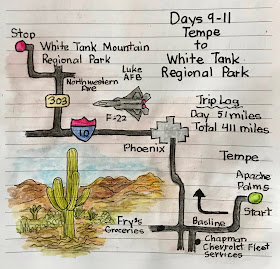 Days 9-11
Tempe
to
White Tank
Regional Park
Stop
White Tank Mountain
Regional Park
Northwestern
Ave
Luke
AFB
303
F-22
10
Trip Log
Day 51 miles
Total 411 miles
Phoenix
Tempe
Apache
Palms
Start
Basline
Fry's
Groceries
Chapman
Chevrolet Fleet
Services